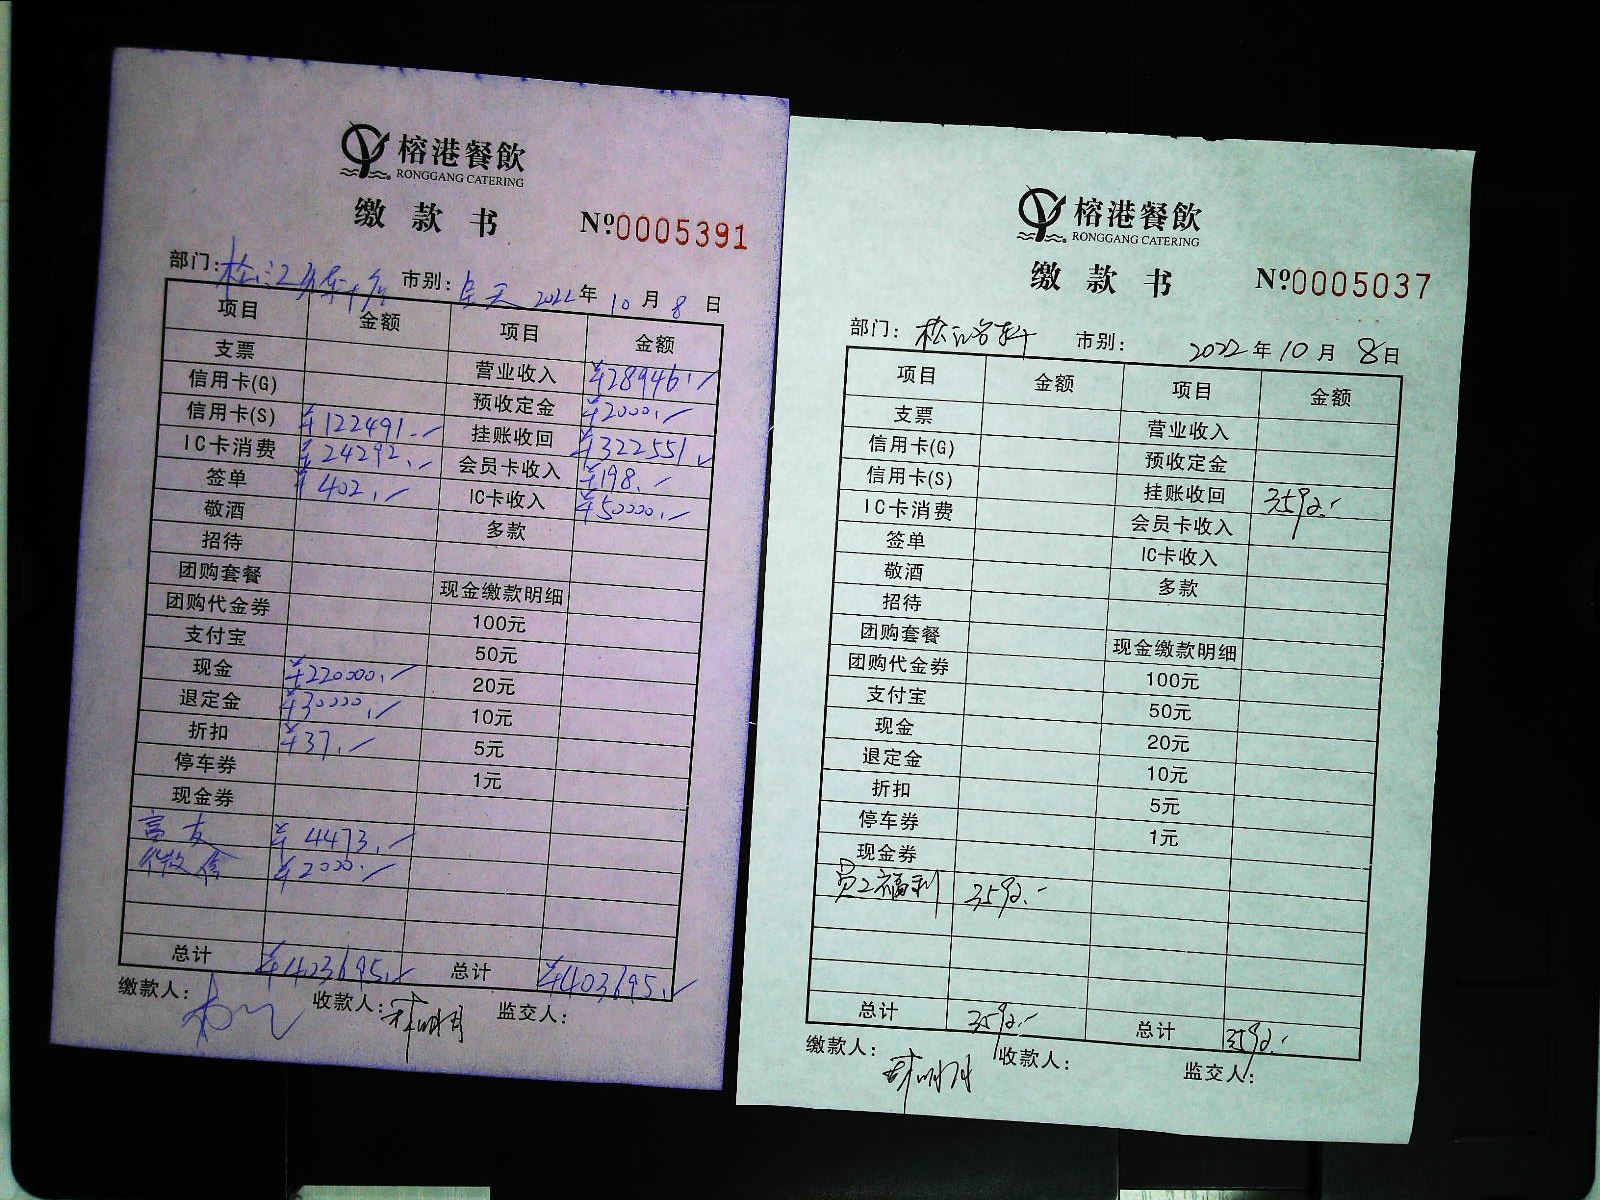 榕港餐飲
RONGGANG CATERING
缴款书 №0005391
部门: 市别: 2022年10月8日
项目 金额 项目 金额
支票 营业收入 ¥28946.-
信用卡(G) 预收定金 ¥2000.-
信用卡(S) ¥122491.- 挂账收回 ¥322551.-
IC卡消费 ¥24292.- 会员卡收入 ¥198.-
签单 ¥402.- IC卡收入 ¥50000.-
敬酒 多款
招待
团购套餐 现金缴款明细
团购代金券 100元
支付宝 50元
现金 ¥220000.- 20元
退定金 ¥30000.- 10元
折扣 ¥37.- 5元
停车券 1元
现金券
¥4473.-
¥2000.-
总计 ¥403695.- 总计 ¥403695.-
缴款人: 收款人: 监交人:
榕港餐飲
RONGGANG CATERING
缴款书 №0005037
部门: 市别: 2022年10月8日
项目 金额 项目 金额
支票 营业收入
信用卡(G) 预收定金
信用卡(S) 挂账收回 3592.-
IC卡消费 会员卡收入
签单 IC卡收入
敬酒 多款
招待
团购套餐 现金缴款明细
团购代金券 100元
支付宝 50元
现金 20元
退定金 10元
折扣 5元
停车券 1元
现金券
员工福利 3592.-
总计 3592.- 总计 3592.-
缴款人: 收款人: 监交人: